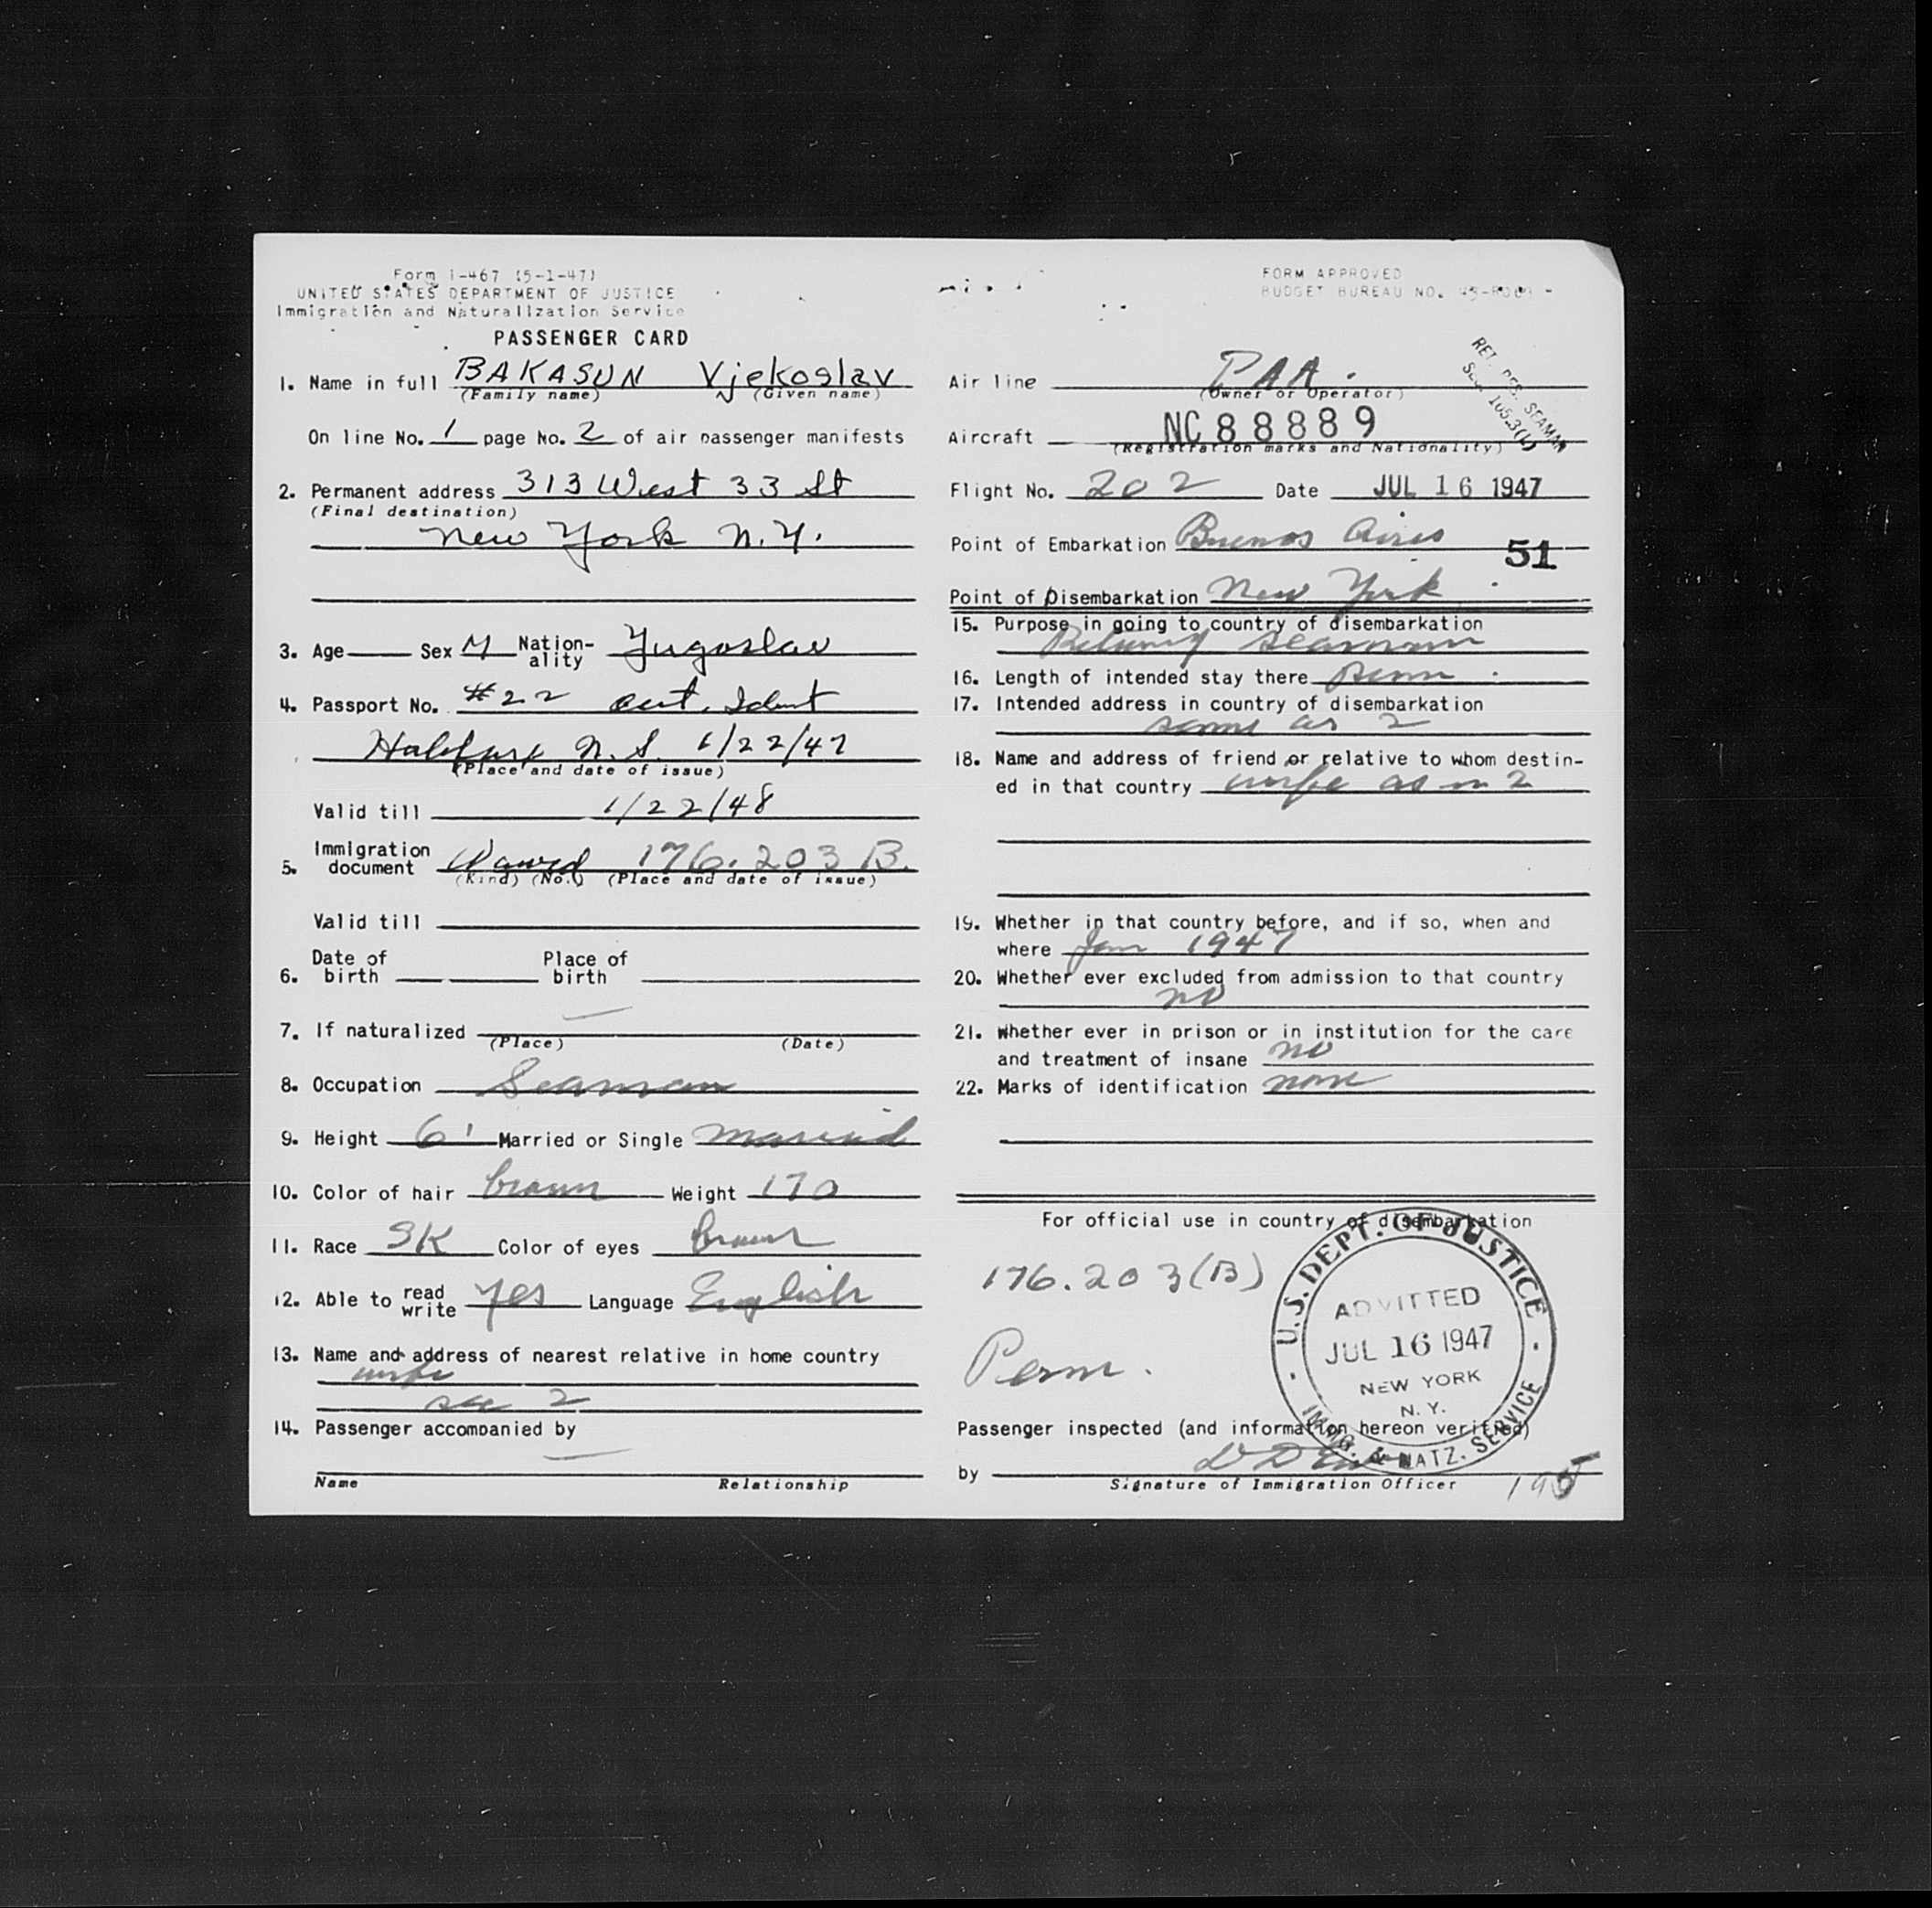 Form I-467 (5-1-47)
UNITED STATES DEPARTMENT OF JUSTICE
Immigration and Naturalization Service
PASSENGER CARD
1. Name in full BAKASUN Vjekoslav
(Family name) (Given name)
On line No. 1 page No. 2 of air passenger manifests
2. Permanent address 313 West 33 St
(Final destination)
New York N.Y.
3. Age Sex M Nation-ality Yugoslav
4. Passport No. #22 Cert. Ident
Halifax N.S. 1/22/47
(Place and date of issue)
Valid till 1/22/48
5. Immigration document Waived 176.203 B.
(Kind) (No.) (Place and date of issue)
Valid till
6. Date of birth Place of birth
7. If naturalized
(Place) (Date)
8. Occupation Seaman
9. Height 6' Married or Single married
10. Color of hair brown Weight 170
11. Race SK Color of eyes brown
12. Able to read write yes Language English
13. Name and address of nearest relative in home country
wife
see 2
14. Passenger accompanied by
Name Relationship
FORM APPROVED
BUDGET BUREAU NO.
RET. RES. SEAMAN
Air line PAA.
(Owner or Operator)
Aircraft NC 88889
(Registration marks and Nationality)
Flight No. 202 Date JUL 16 1947
Point of Embarkation Buenos Aires
51
Point of Disembarkation New York
15. Purpose in going to country of disembarkation
Returning seaman
16. Length of intended stay there perm
17. Intended address in country of disembarkation
same as 2
18. Name and address of friend or relative to whom destin-
ed in that country wife as in 2
19. Whether in that country before, and if so, when and
where Jan 1947
20. Whether ever excluded from admission to that country
no
21. Whether ever in prison or in institution for the care
and treatment of insane no
22. Marks of identification none
For official use in country of disembarkation
176.203(B)
Perm.
U.S. DEPT. OF JUSTICE
ADMITTED
JUL 16 1947
NEW YORK
N.Y.
IMMIG. & NATZ. SERVICE
Passenger inspected (and information hereon verified)
by
Signature of Immigration Officer